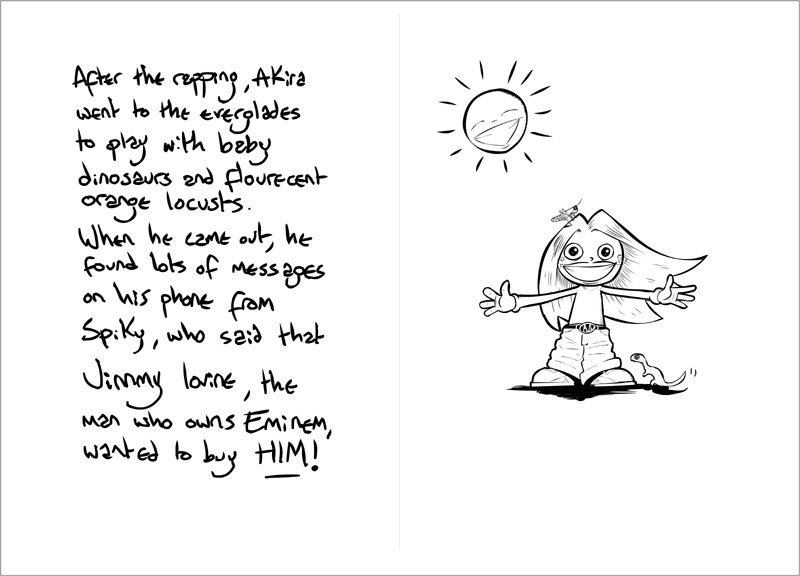 After the rapping, Akira
went to the everglades
to play with baby
dinosaurs and flourecent
orange locusts.
When he came out, he
found lots of messages
on his phone from
Spiky, who said that
Jimmy Iovine, the
man who owns Eminem,
wanted to buy HIM!